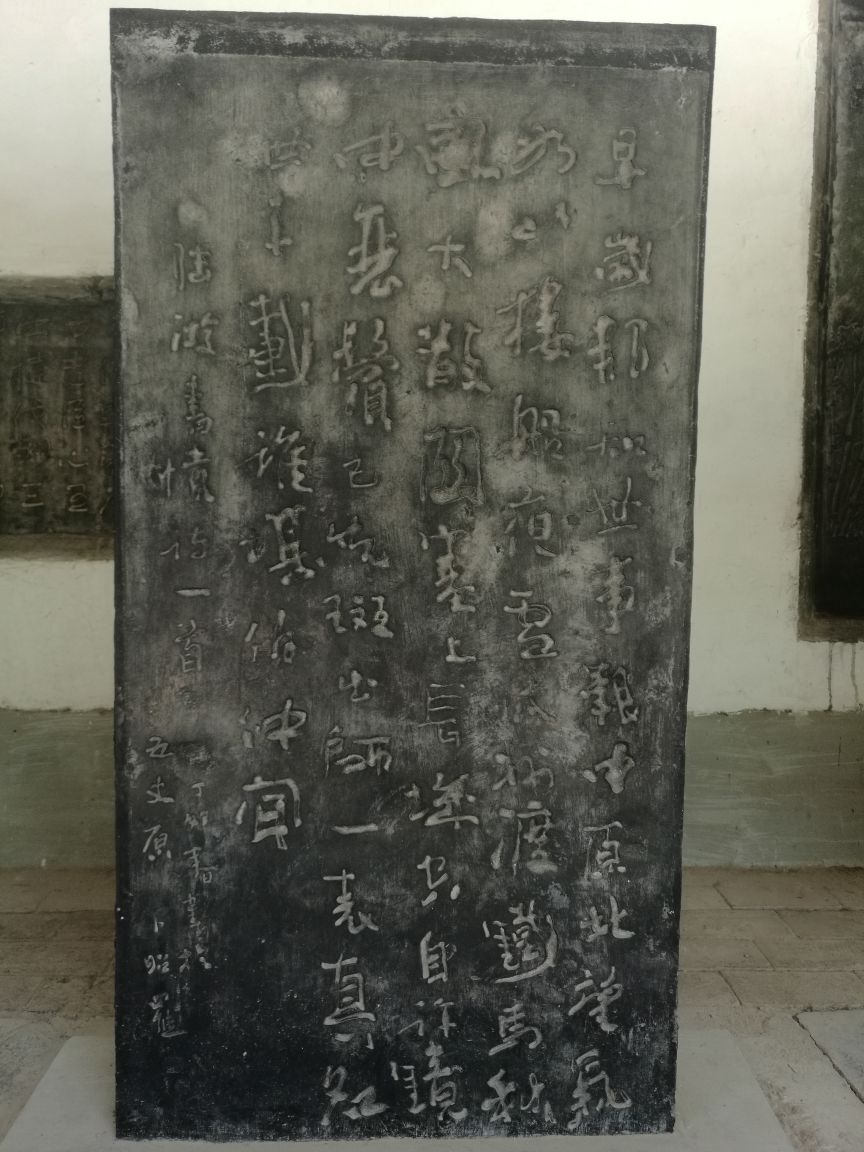 早歲那知世事艱中原北望氣
如山樓船夜雪瓜洲渡鐵馬秋
風大散關塞上長城空自許鏡
中衰鬢已先斑出師一表真名
世千載誰堪伯仲間
陸游書憤詩一首
丁卯
五丈原